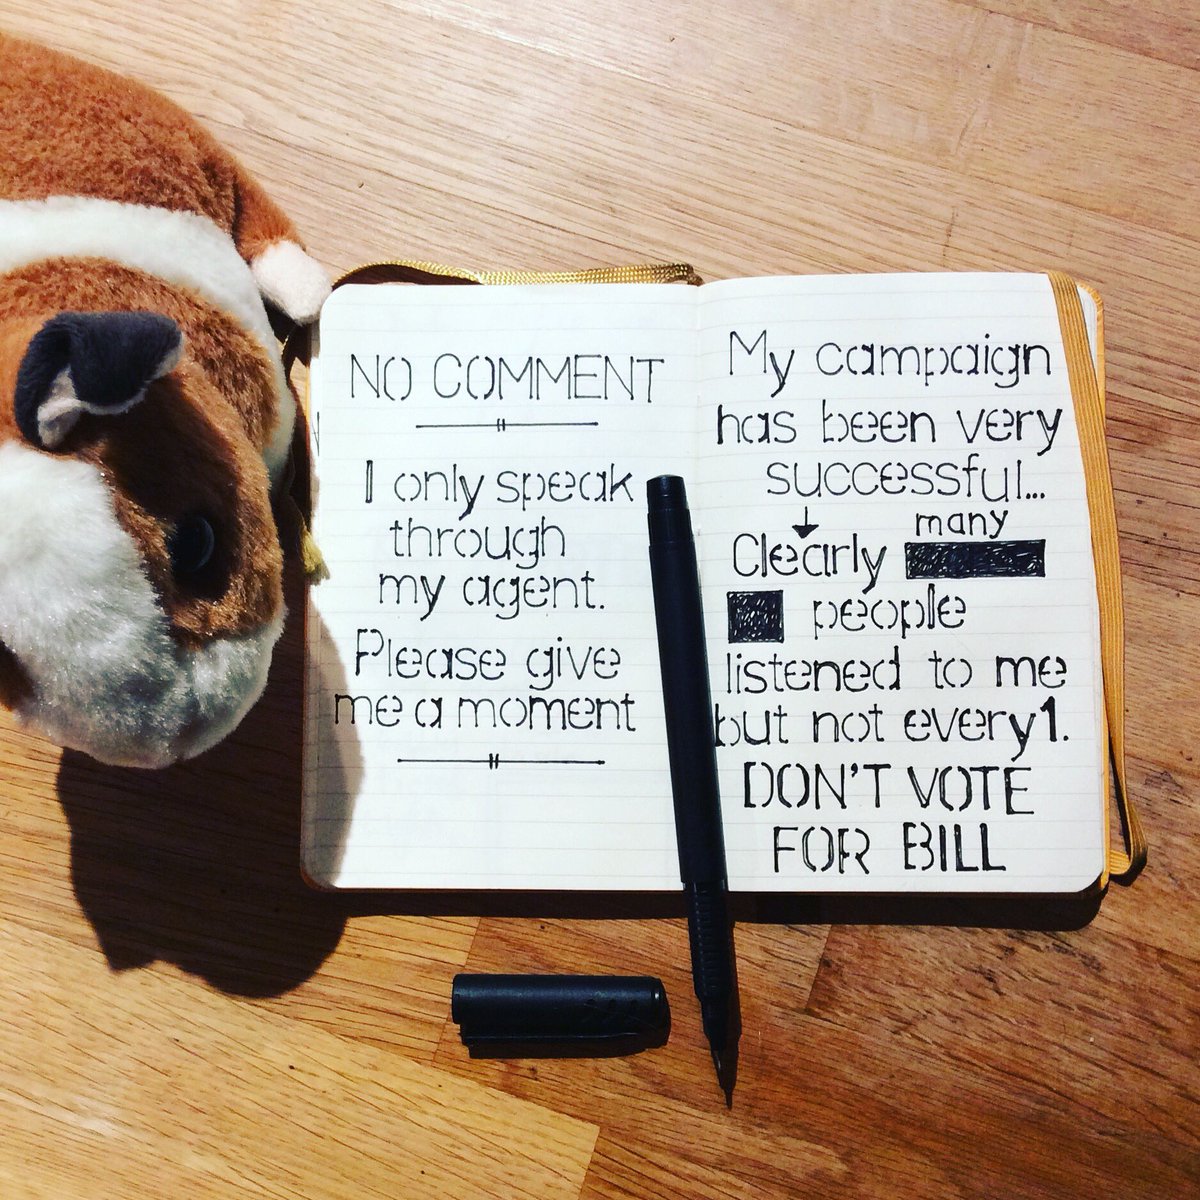 NO COMMENT
I only speak
through
my agent.
Please give
me a moment
My campaign
has been very
successful...
many
Clearly
people
listened to me
but not every1.
DON'T VOTE
FOR BILL